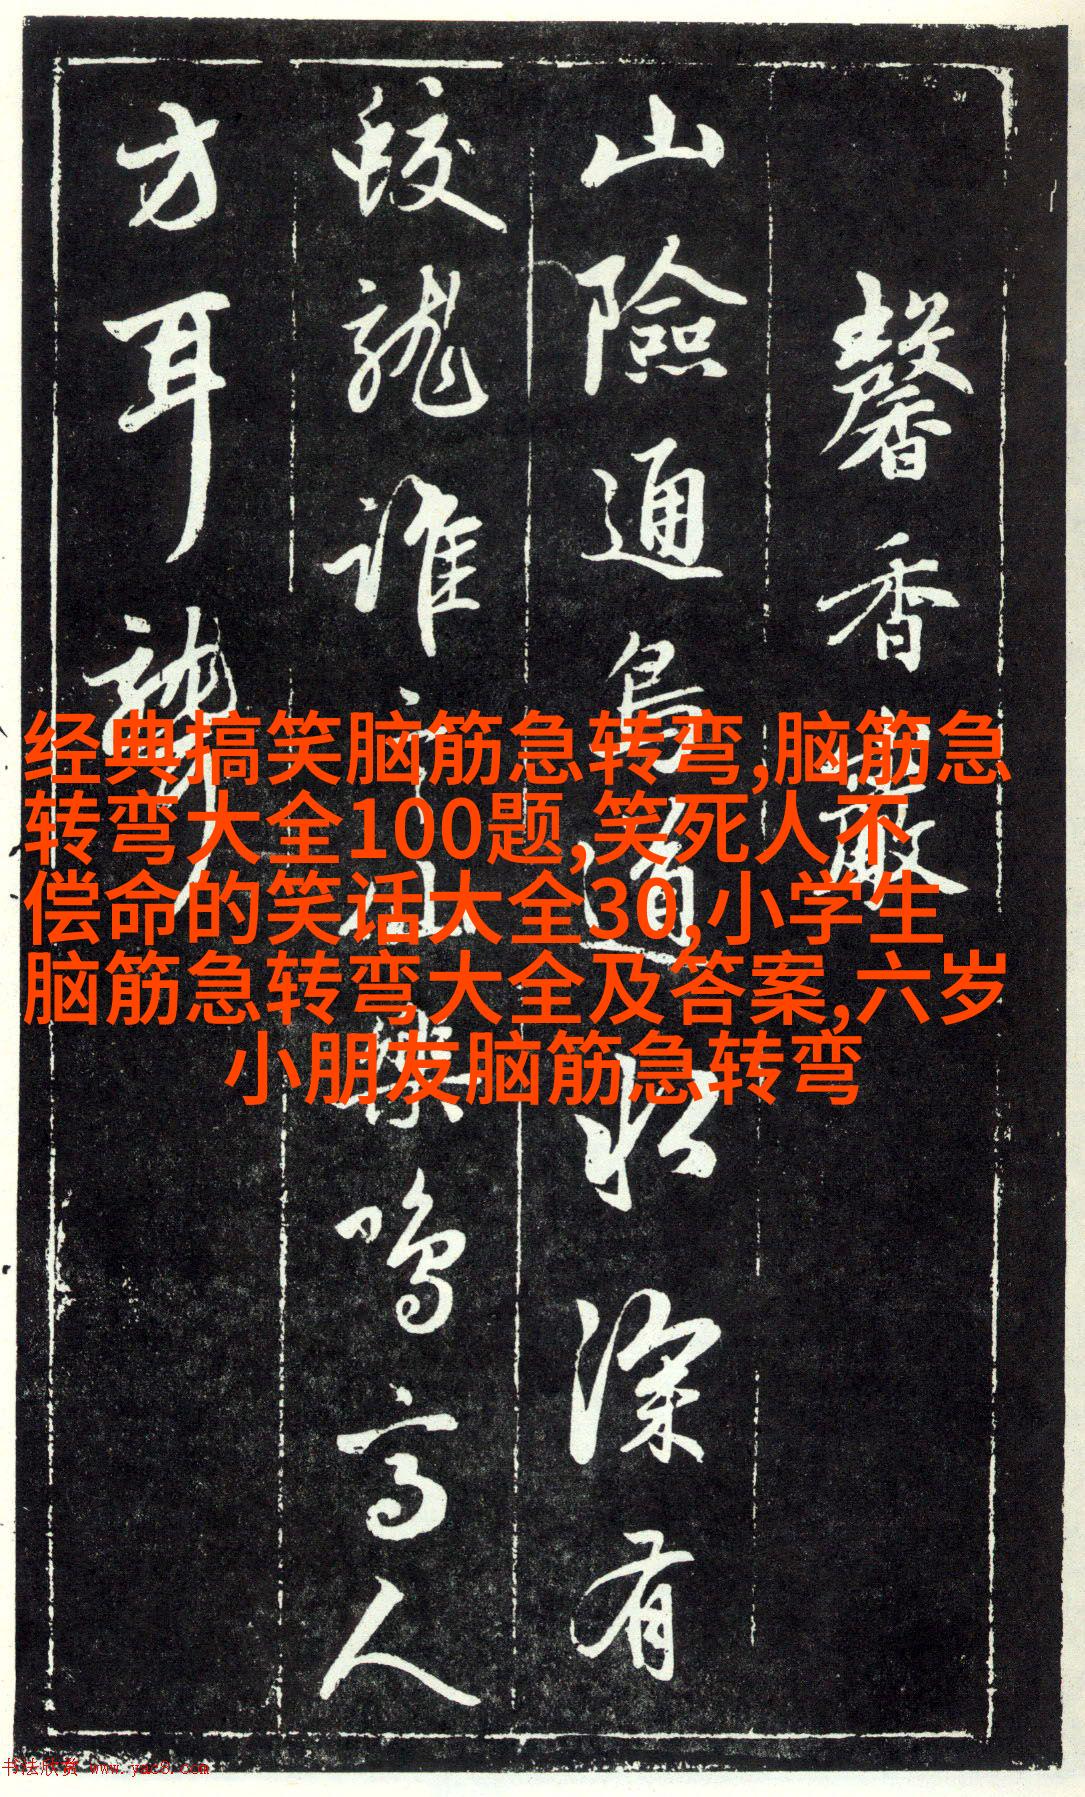 馨香
山險通鳥道水深有
蛟龍誰鳴高人
方耳聾
经典搞笑脑筋急转弯,脑筋急
转弯大全100题,笑死人不
偿命的笑话大全30,小学生
脑筋急转弯大全及答案,六岁
小朋友脑筋急转弯
书法欣赏 www.yac8.com